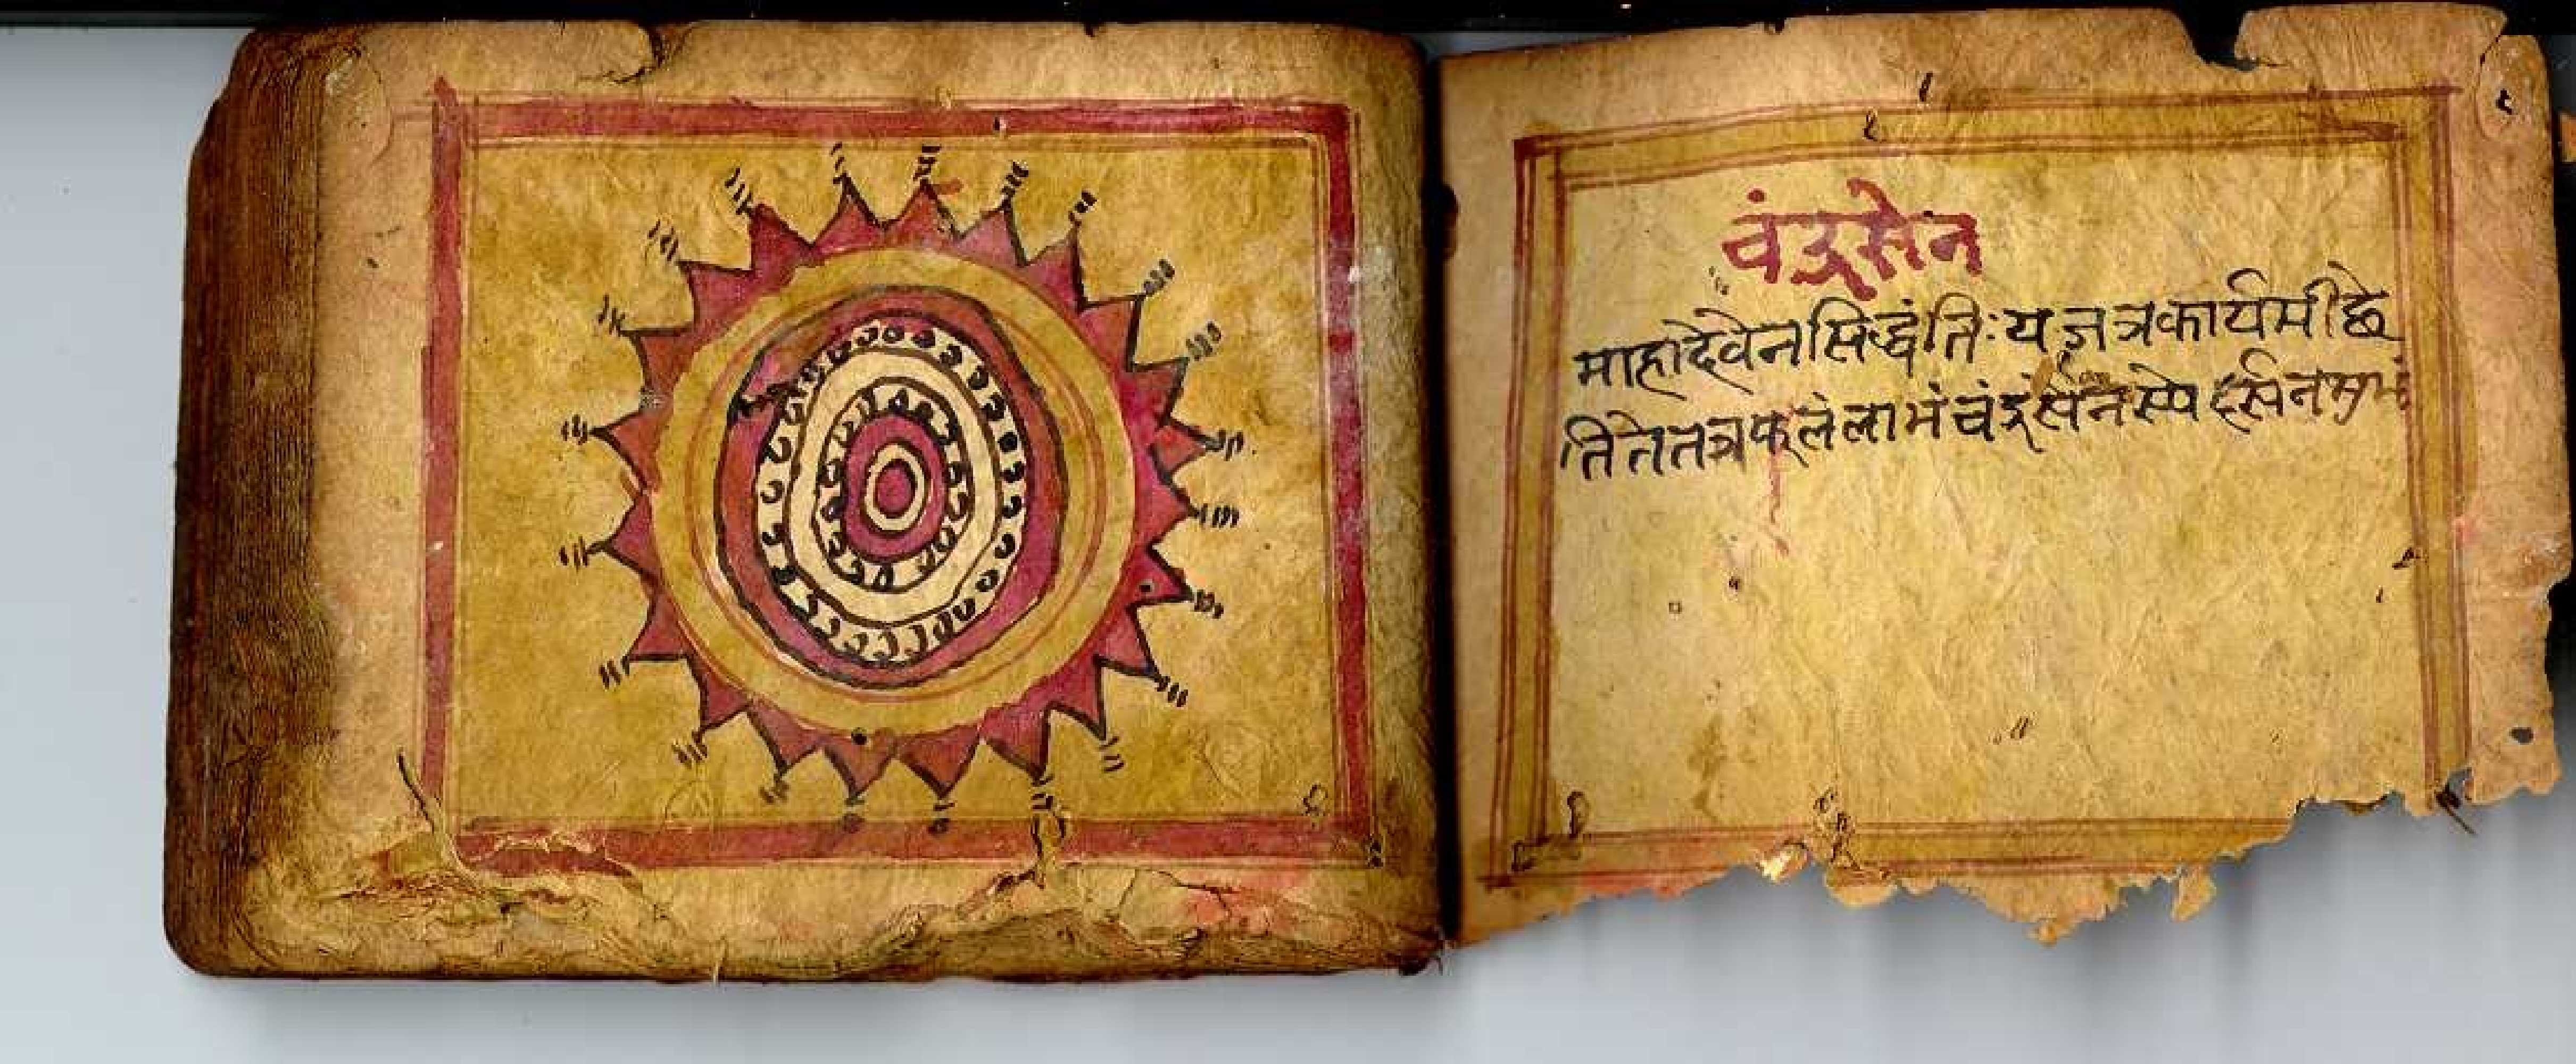 चंद्रसेन
माहादेवेन सिद्धंतिः यज्ञत्र कार्यमीछे
तितेतत्र फलं लाभं चंद्रसेनस्पे दर्सन